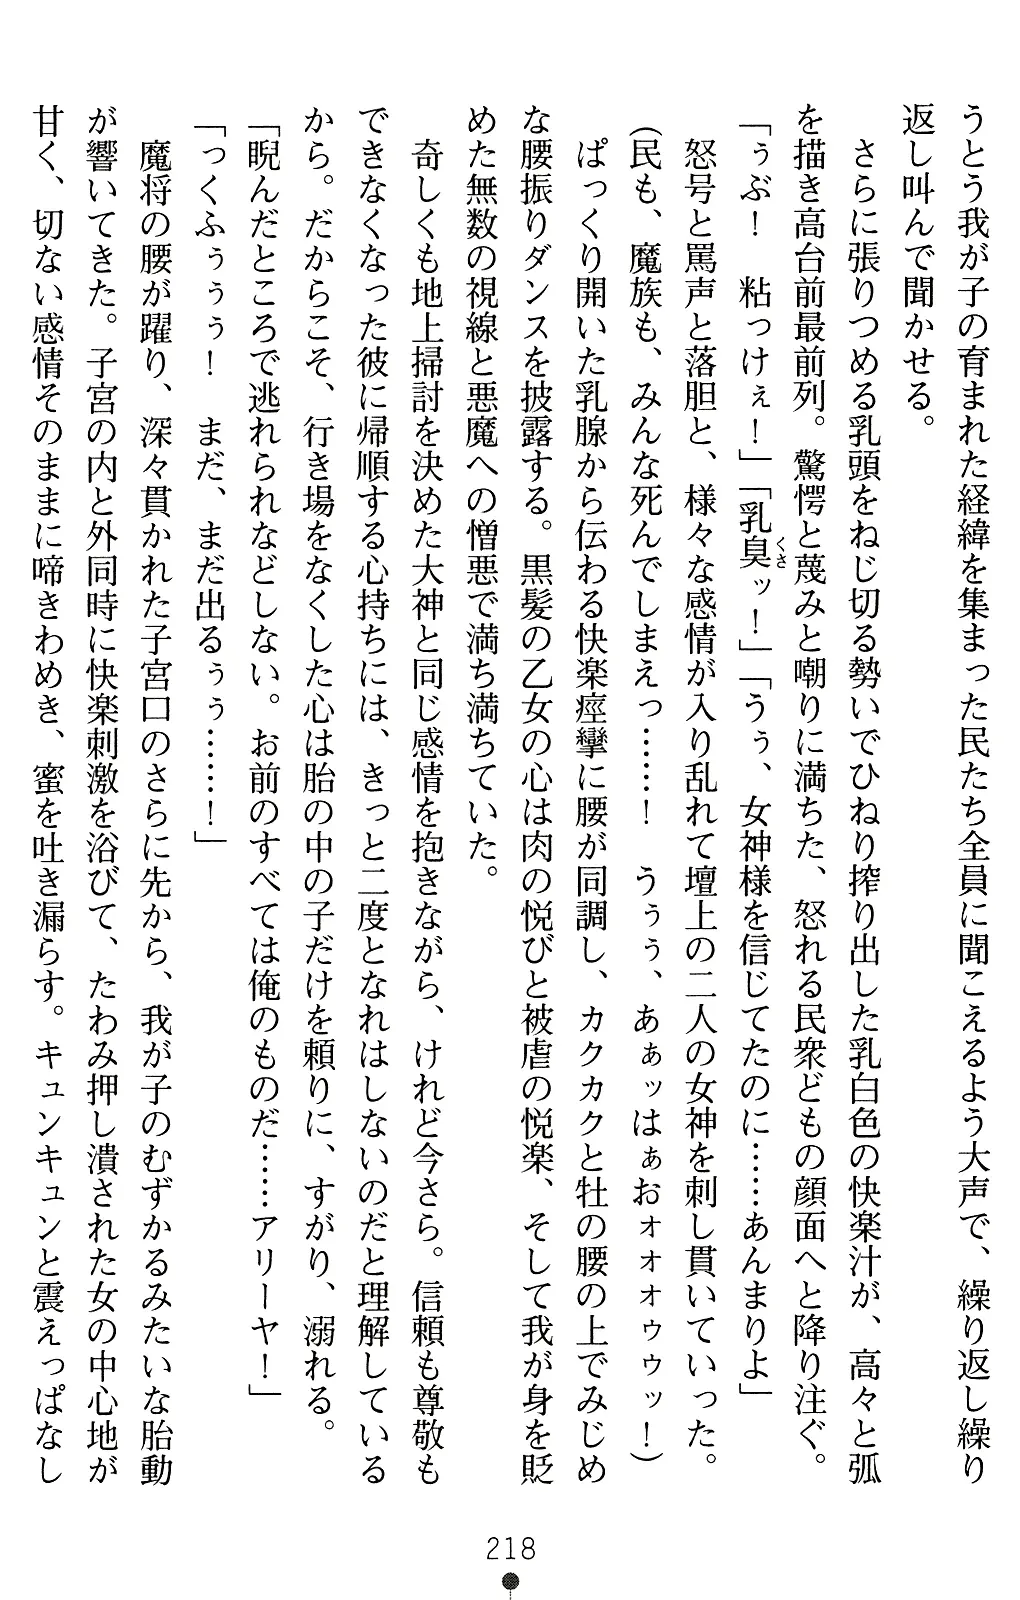 うとう我が子の育まれた経緯を集まった民たち全員に聞こえるよう大声で、繰り返し繰り
返し叫んで聞かせる。
さらに張りつめる乳頭をねじ切る勢いでひねり搾り出した乳白色の快楽汁が、高々と弧
を描き高台前最前列。驚愕と蔑みと嘲りに満ちた、怒れる民衆どもの顔面へと降り注ぐ。
「ぅぶ！　粘っけぇ！」「乳臭くさッ！」「うぅ、女神様を信じてたのに……あんまりよ」
怒号と罵声と落胆と、様々な感情が入り乱れて壇上の二人の女神を刺し貫いていった。
（民も、魔族も、みんな死んでしまえっ……！　うぅぅ、あぁッはぁおォォォゥゥッ！）
ぱっくり開いた乳腺から伝わる快楽痙攣に腰が同調し、カクカクと牡の腰の上でみじめ
な腰振りダンスを披露する。黒髪の乙女の心は肉の悦びと被虐の悦楽、そして我が身を貶
めた無数の視線と悪魔への憎悪で満ち満ちていた。
奇しくも地上掃討を決めた大神と同じ感情を抱きながら、けれど今さら。信頼も尊敬も
できなくなった彼に帰順する心持ちには、きっと二度となれはしないのだと理解している
から。だからこそ、行き場をなくした心は胎の中の子だけを頼りに、すがり、溺れる。
「睨んだところで逃れられなどしない。お前のすべては俺のものだ……アリーヤ！」
「っくふぅぅぅ！　まだ、まだ出るぅぅ……！」
魔将の腰が躍り、深々貫かれた子宮口のさらに先から、我が子のむずかるみたいな胎動
が響いてきた。子宮の内と外同時に快楽刺激を浴びて、たわみ押し潰された女の中心地が
甘く、切ない感情そのままに啼きわめき、蜜を吐き漏らす。キュンキュンと震えっぱなし
218